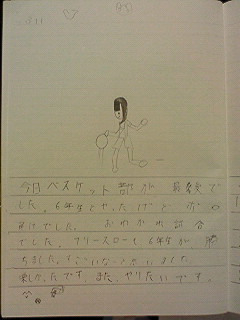 今日バスケット部が最後で
した。6年生とやったけど ボ
負けでした。 おわかれ試合
でした。フリースローも6年生が勝
ちました。すごいなーと思いました。
楽しかったです。また、やりたいです。